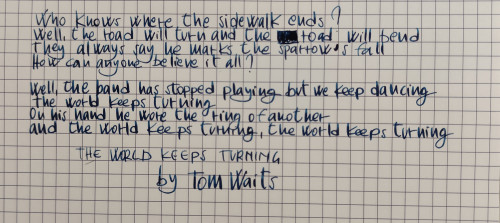 Who knows where the sidewalk ends?
Well, the road will turn and the road will bend
They always say he marks the sparrow's fall
How can anyone believe it all?
Well, the band has stopped playing but we keep dancing
The world keeps turning
On his hand he wore the ring of another
and the world keeps turning, the world keeps turning
THE WORLD KEEPS TURNING
by Tom Waits